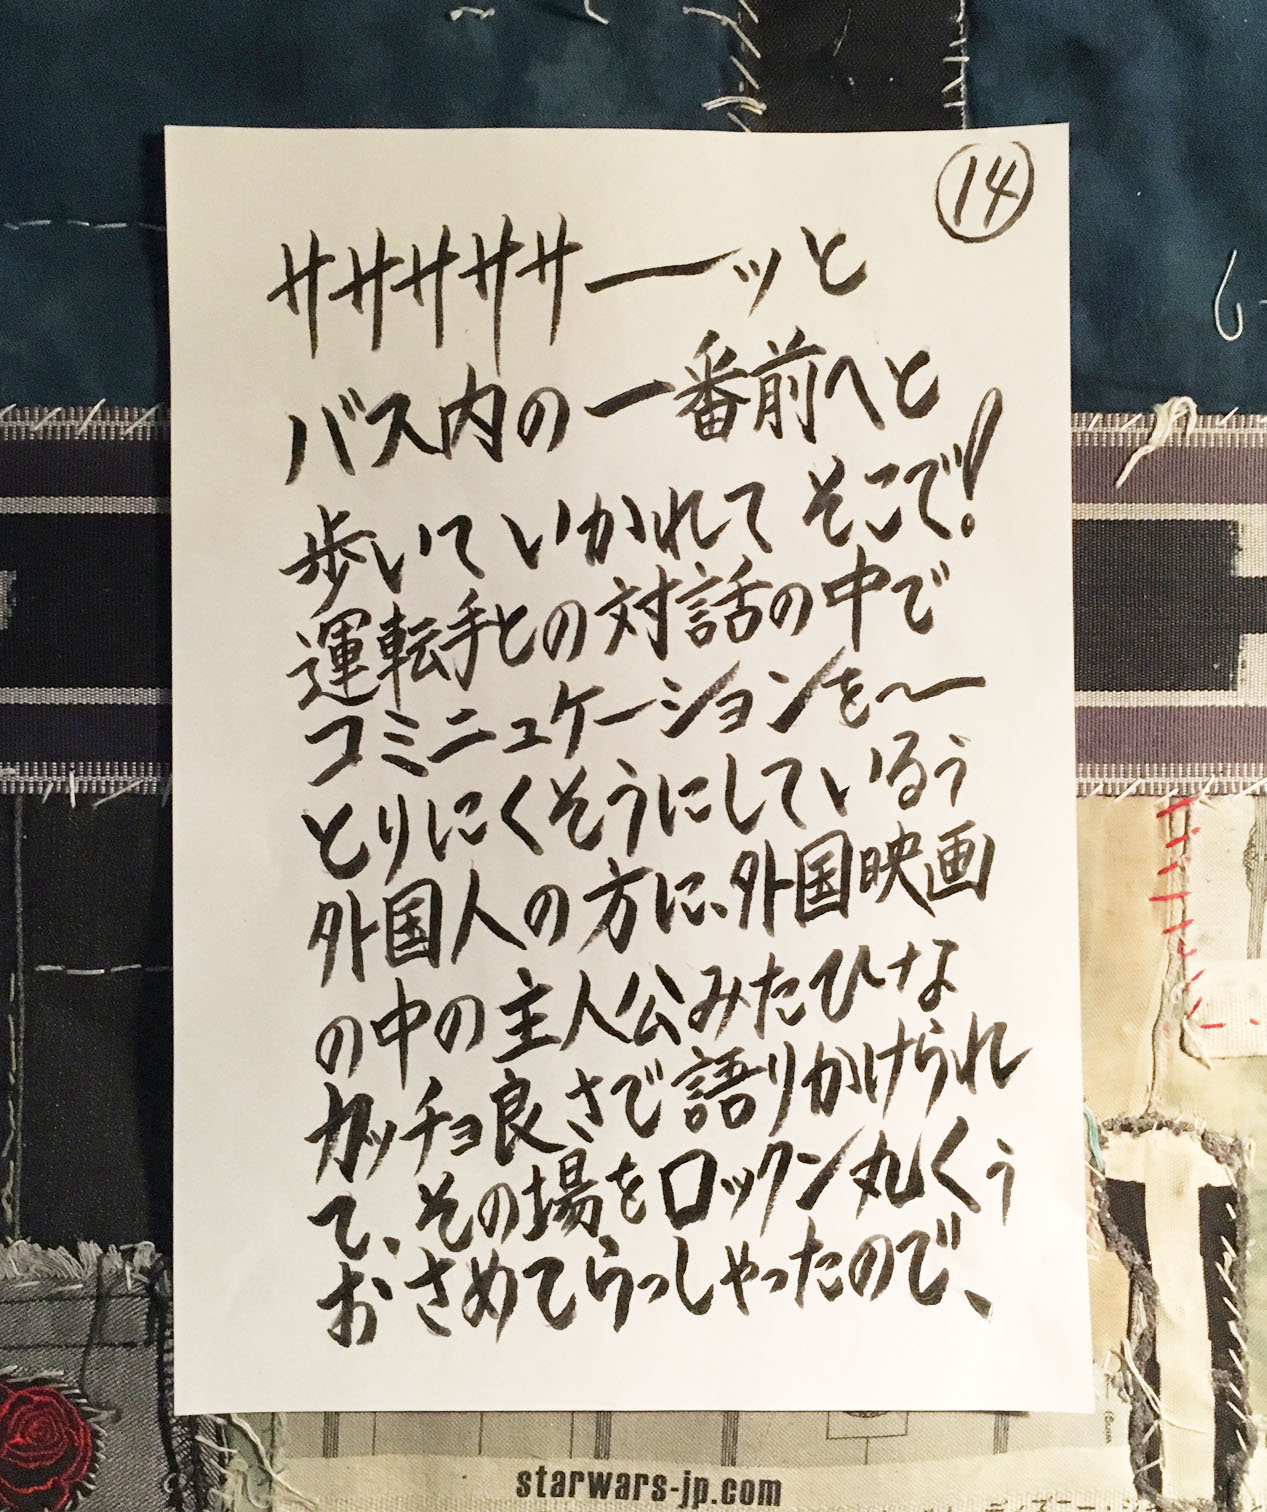 14
ササササササーーッと
バス内の一番前へと
歩いていかれて そこで!
運転手との対話の中で
コミニュケーションを〜
とりにくそうにしているぅ
外国人の方に、外国映画
の中の主人公みたひな
カッチョ良さで語りかけられ
て、その場をロックン丸くぅ
おさめてらっしゃったので、
starwars-jp.com